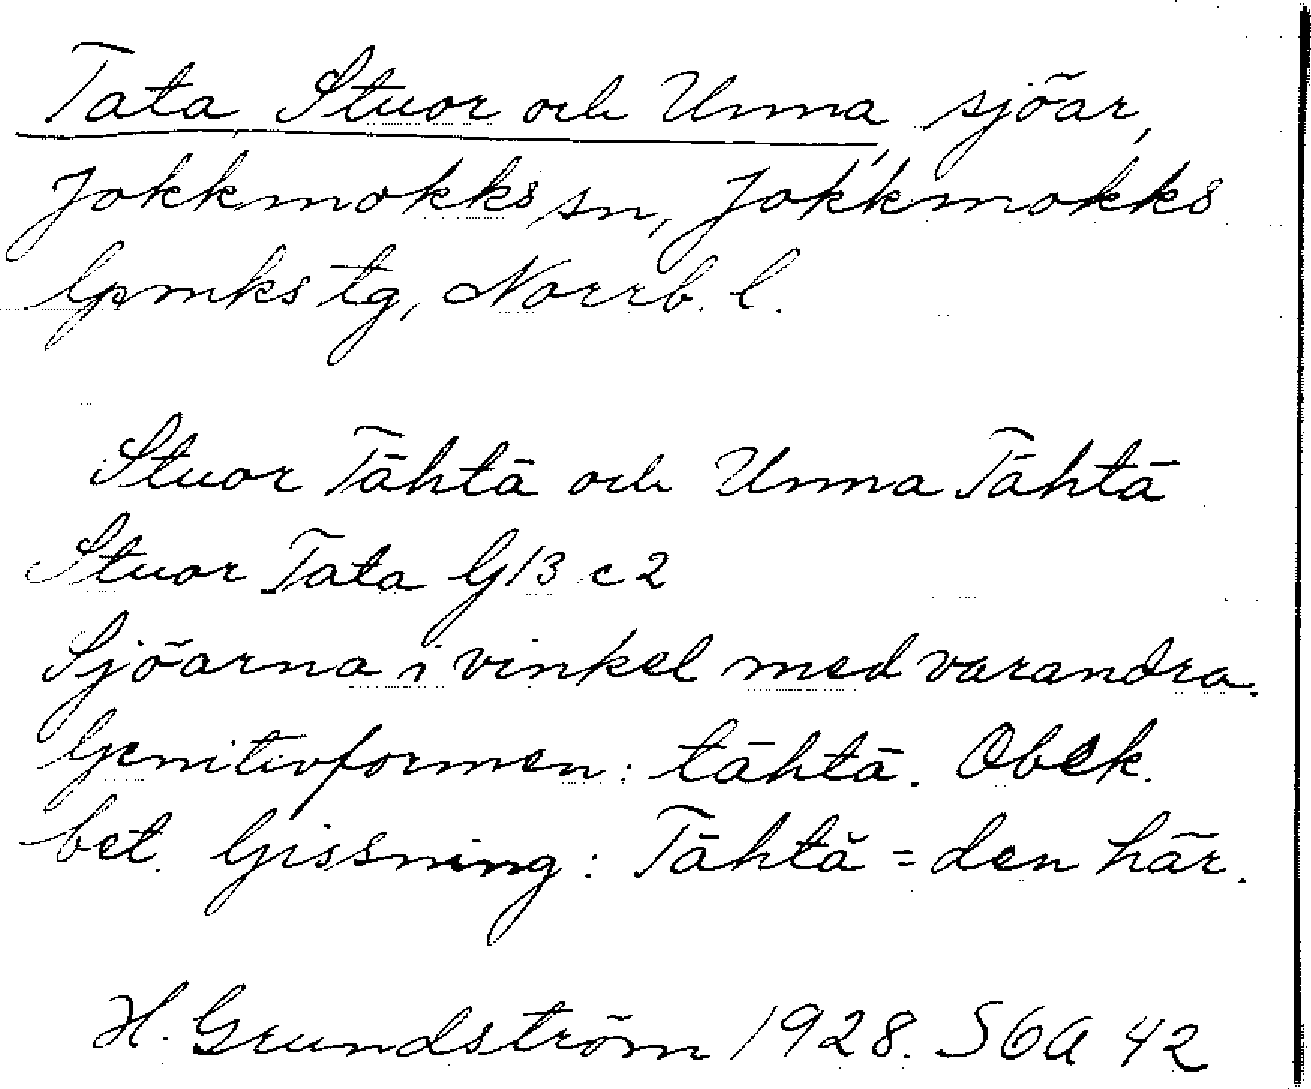 Tata, Stuor och Unna, sjöar,
Jokkmokks sn, Jokkmokks
lpmks tg, Norrb. l.
Stuor Tähtä och Unna Tähtä
Stuor Tata G13 c2
Sjöarna i vinkel med varandra.
Genitivformen: tähtä. Obek.
bet. Gissning: Tähtä = den här.
H. Grundström 1928. SOA 42